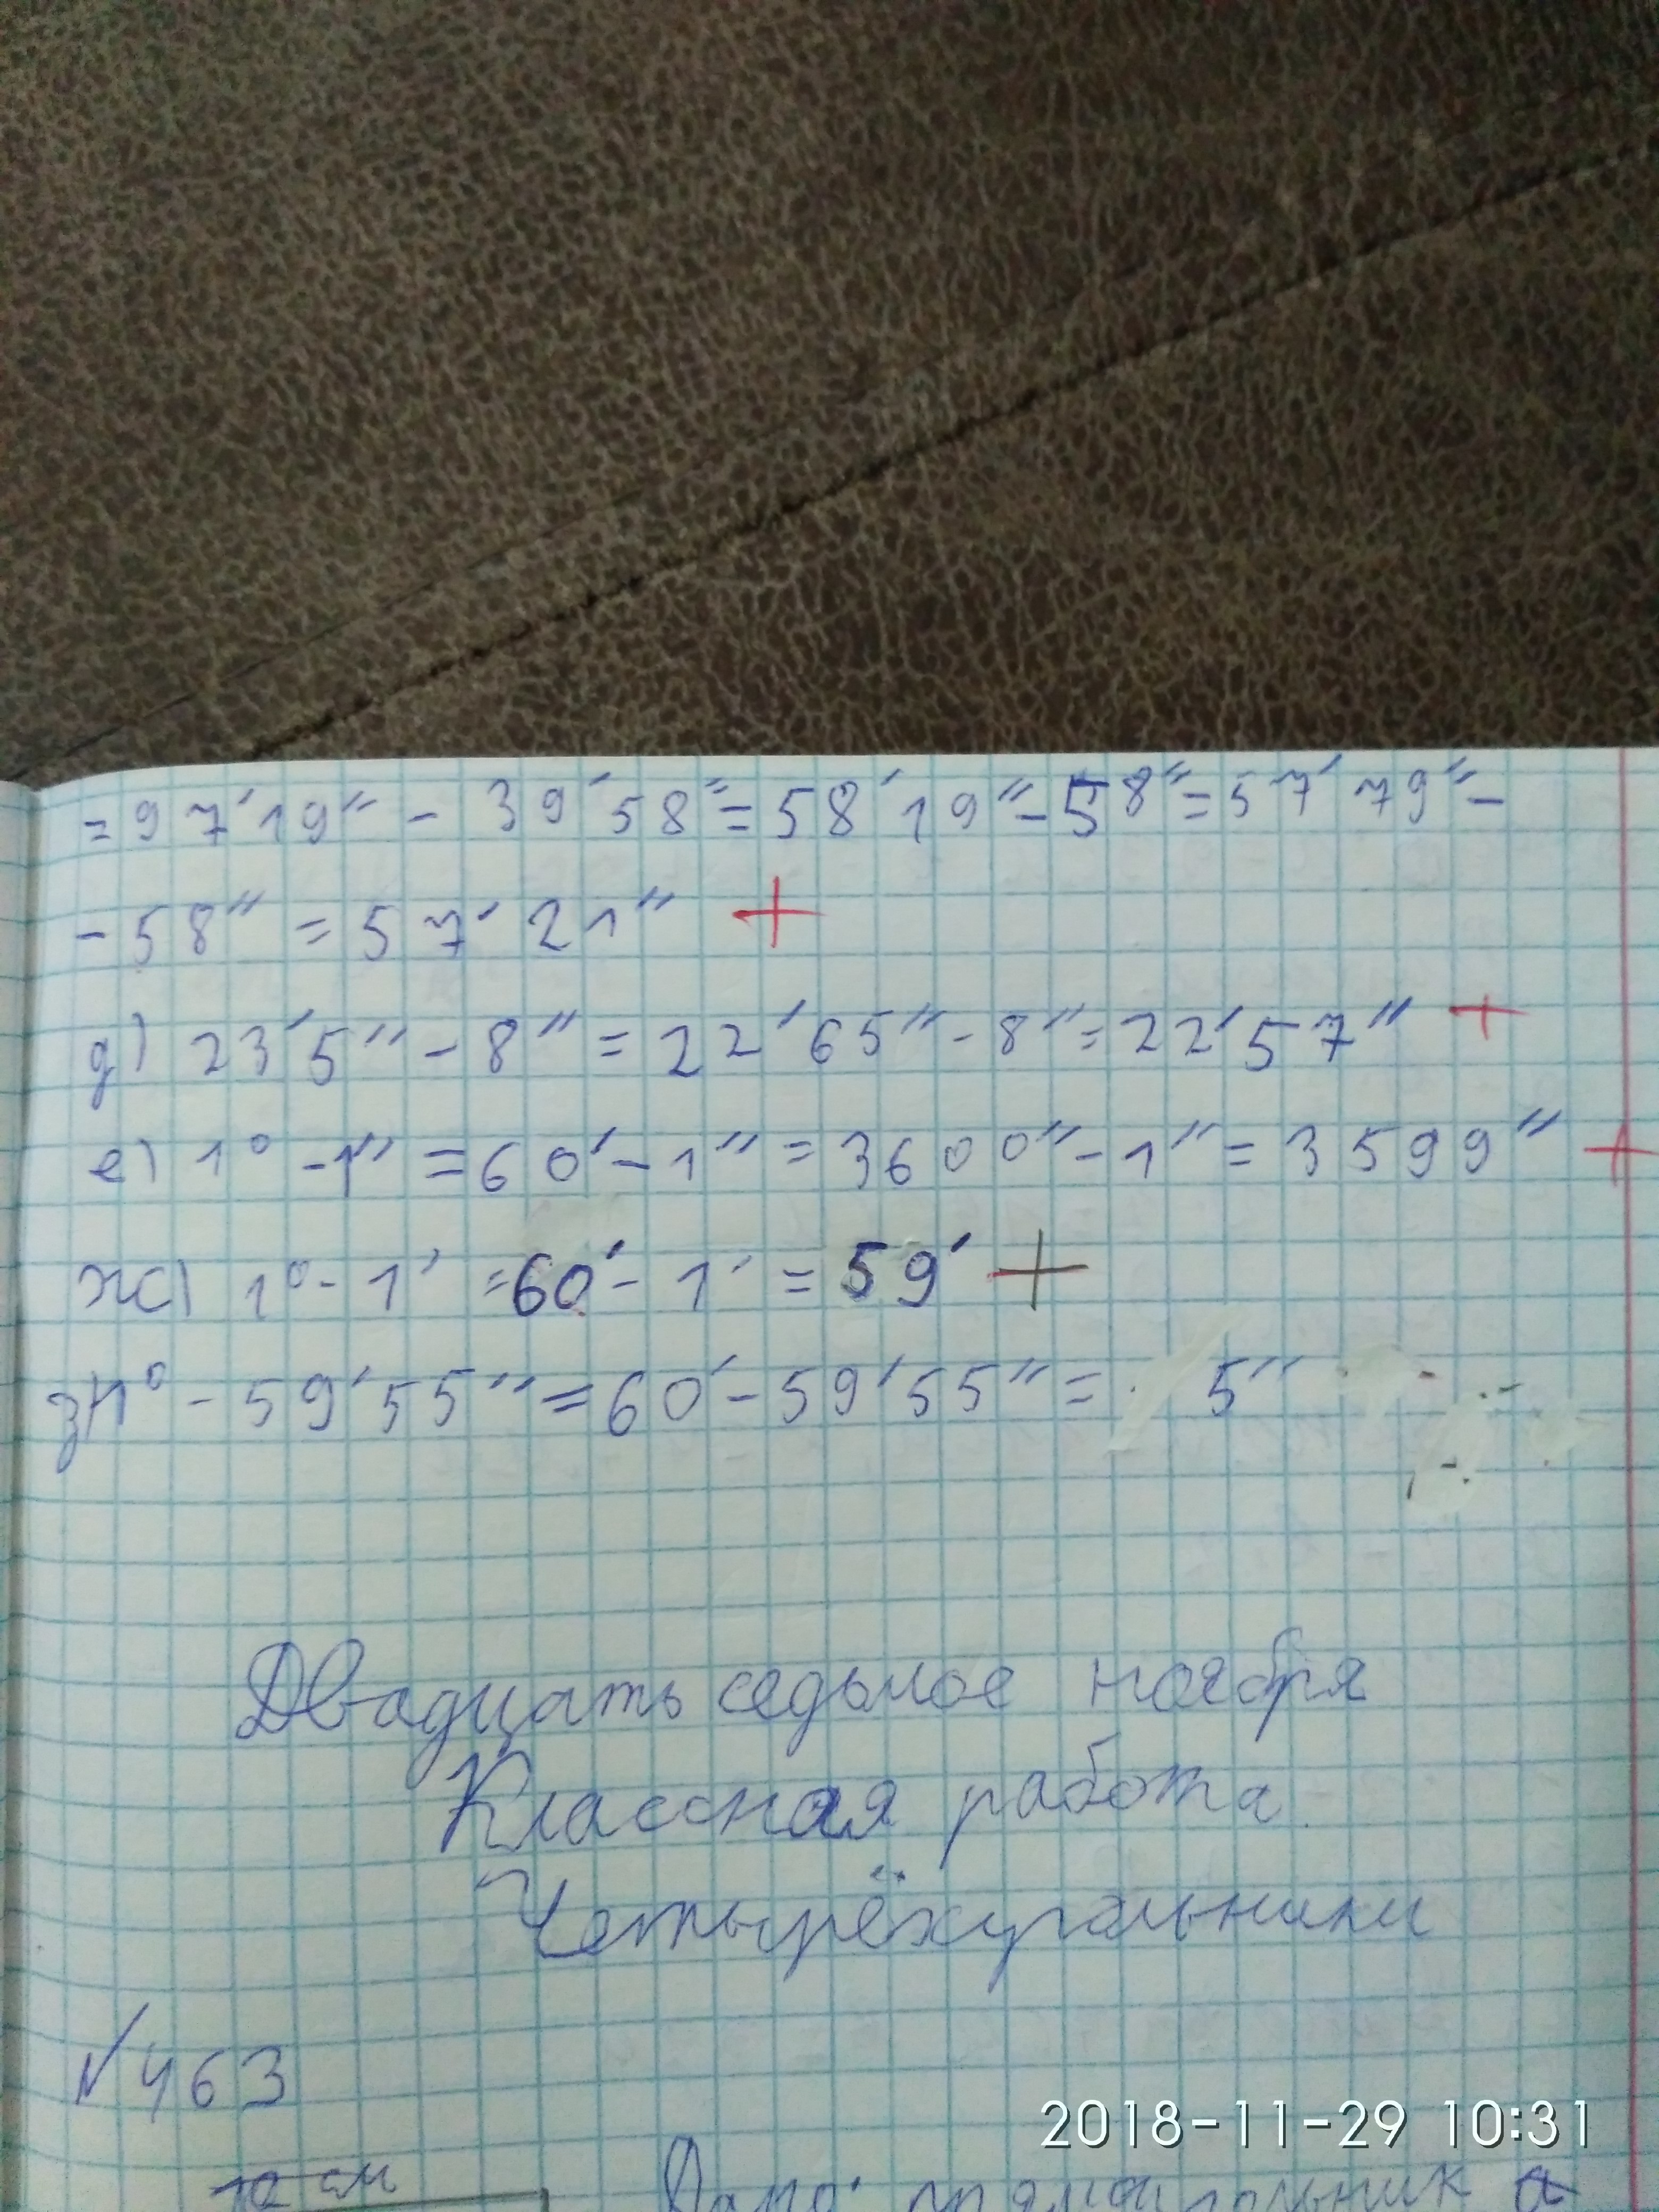 = 97′19″ - 39′58″ = 58′19″ - 58″ = 57′79″ -
- 58″ = 57′21″ +
д) 23′5″ - 8″ = 22′65″ - 8″ = 22′57″ +
е) 1° - 1″ = 60′ - 1″ = 3600″ - 1″ = 3599″ +
ж) 1° - 1′ = 60′ - 1′ = 59′ +
з) 1° - 59′55″ = 60′ - 59′55″ = 5″
Двадцать седьмое ноября
Классная работа.
Четырёхугольники
№ 463
2018-11-29 10:31
10 см
Дано: прямоугольник